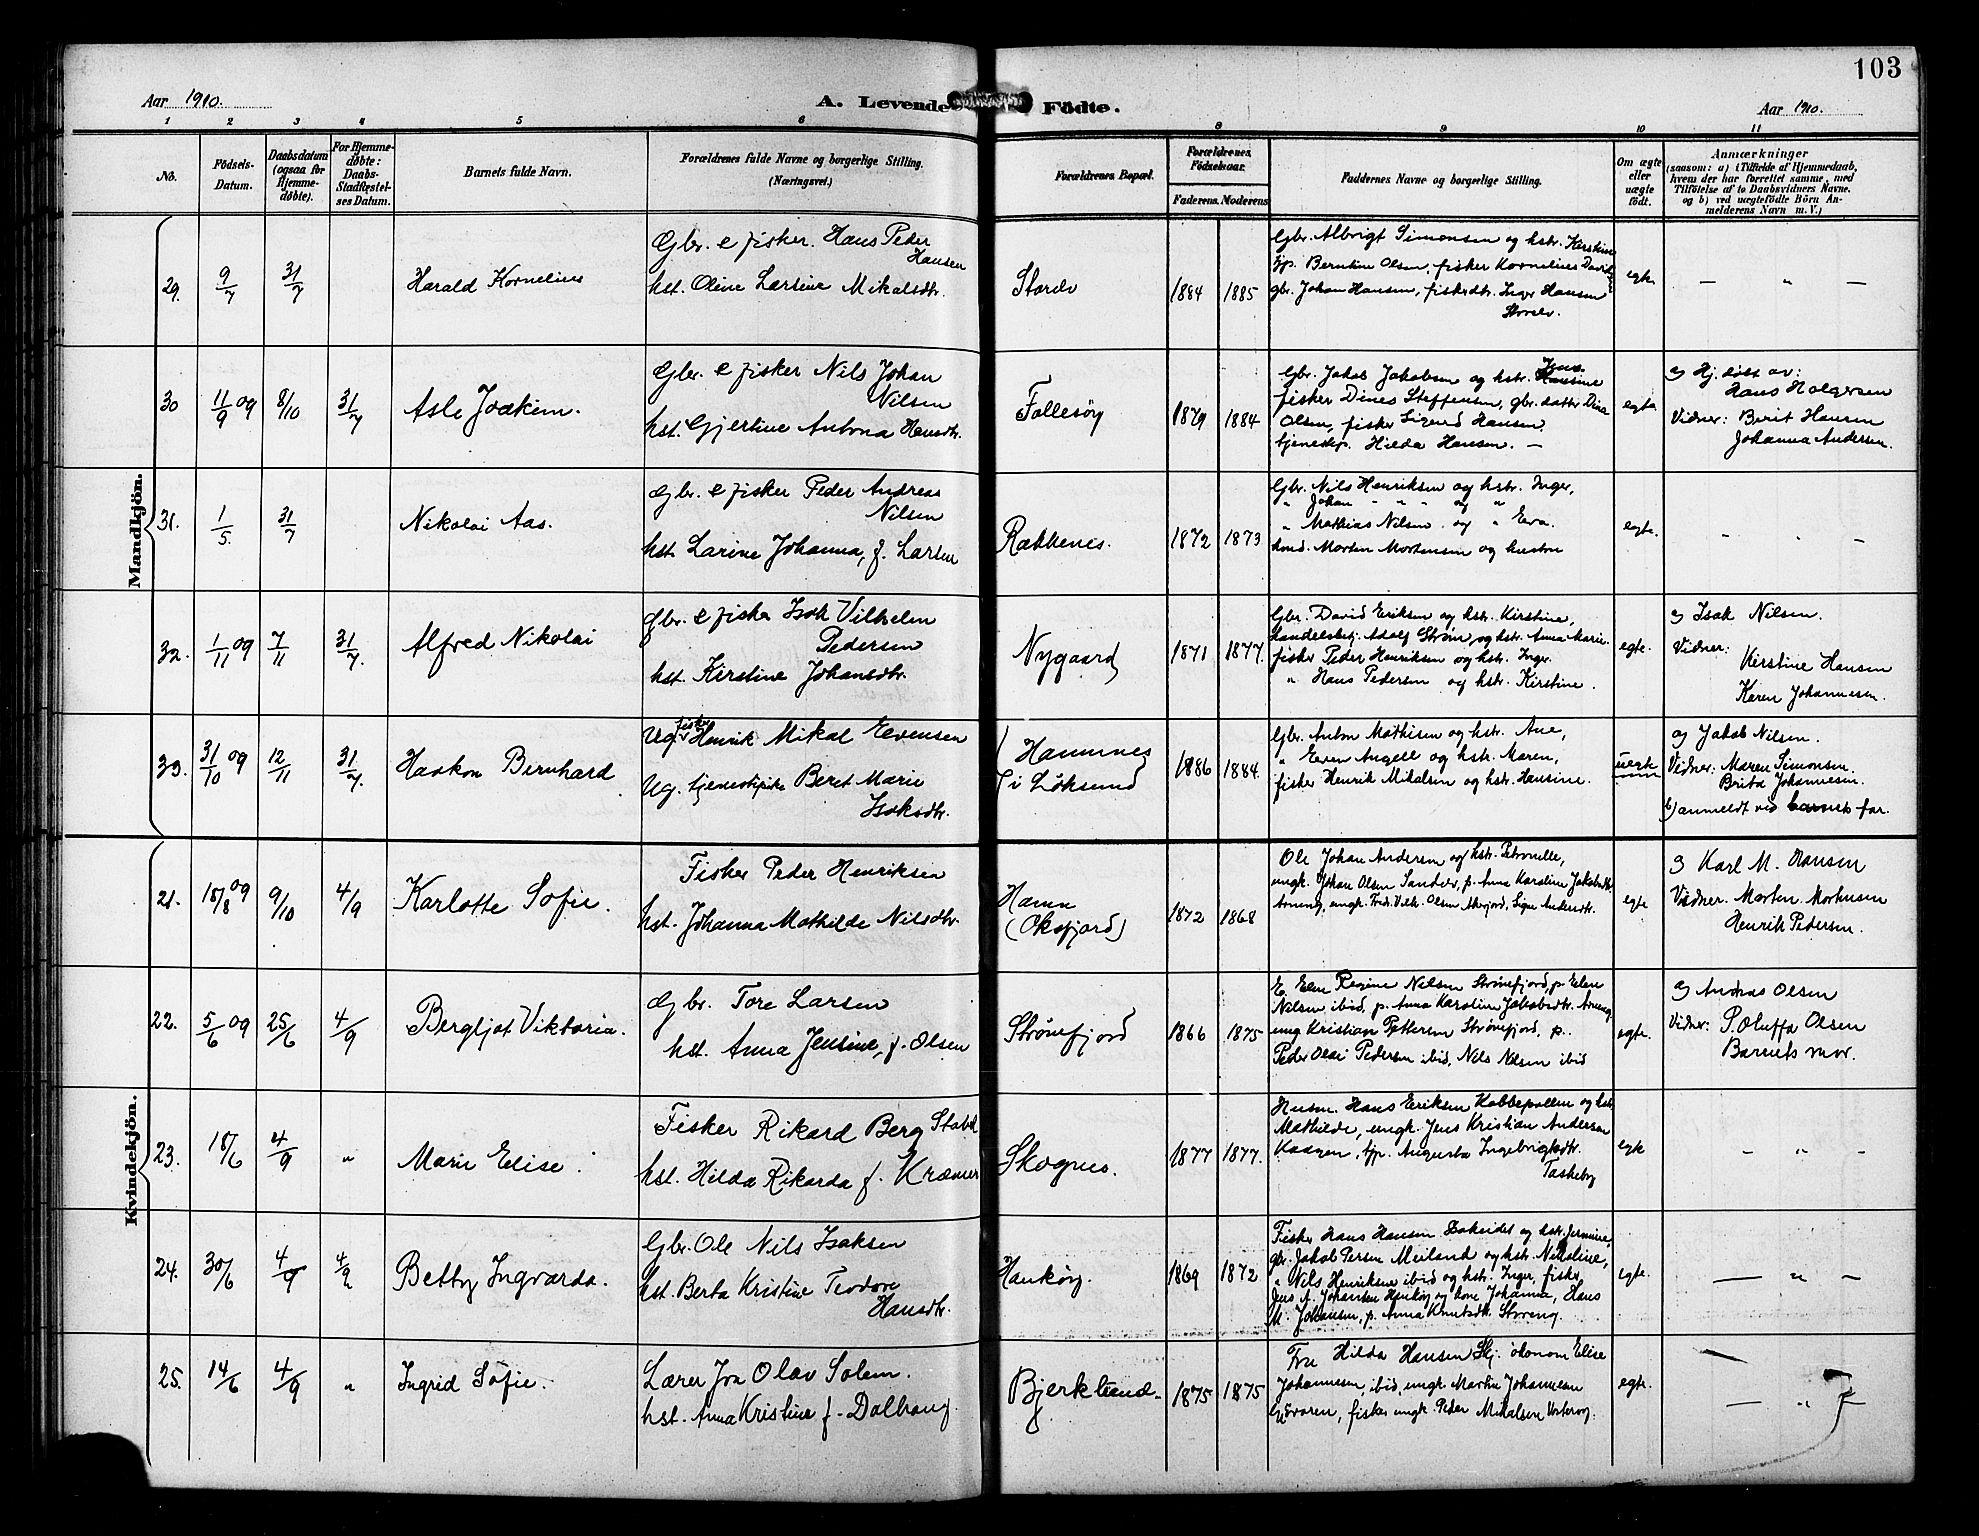 103
Aar 1910.
A. Levende Födte.
Aar 1910.
1 2 3 4 5 6 8 9 10 11
No.
Födsels-Datum.
Daabsdatum (ogsaa for Hjemme-døbte).
For Hjemme-døbte: Daabs-Stadfæstel-ses Datum.
Barnets fulde Navn.
Forældrenes fulde Navne og borgerlige Stilling.
(Næringsvei.)
Forældrenes Bopæl.
Forældrenes Födselsaar.
Faderens. Moderens
Faddernes Navne og borgerlige Stilling.
Om ægte eller uægte födt.
Anmærkninger
(saasom: a) i Tilfælde af Hjemmedaab,
hvem der har forrettet samme, med
Tilföielse af to Daabsvidners Navne.
og b) ved uægtefödte Börn An-
melderens Navn m. V.)
Mandkjön.
29. 9/7 31/7 Harald Kornelius
Gbr. e fisker. Hans Peder
Hansen
hst. Oline Larsine Mikalsdtr.
Storelv 1884 1885
Gbr. Albrigt Simonsen og hstr. Kirstine
tjp. Berntine Olsen, fisker Kornelius Davidsen
gbr. Johan Hansen, fiskerdtr. Inger Hansen
Storelv.
egte. — " —
30 11/9 09 8/10 31/7 Asle Joakim.
Gbr. e fisker Nils Johan
Nilsen
hst. Gjertine Antona Hansdtr.
Follesöy 1879 1884
Gbr. Jakob Jakobsen og hstr. Hansine
fisker Dines Steffensen, gbr. datter Dina
Olsen, fisker Sigurd Hansen
tjenestep. Hilda Hansen. —
egte.
a) Hj. döbt av:
Hans Holgersen
Vidner: Berit Hansen
Johanna Andersen.
31. 1/5. 31/7 Nikolai Aas.
Gbr. e fisker Peder Andreas
Nilsen
hst. Larine Johanna, f. Larsen
Rakkenes. 1872 1873
Gbr. Nils Henriksen og hstr. Inger,
" Johan " " " og "
" Mathias Nilsen og " Eva.
hmd. Morten Mortensen og hustru
egte. - " -
32. 1/11 09 7/11 31/7. Alfred Nikolai
Gbr. e fisker Isak Vilhelm
Pedersen
hst. Kirstine Johansdtr.
Nygaard 1871 1877.
Gbr. David Eriksen og hstr. Kirstine,
Handelsbetj. Adolf Strøm, og hstr. Anna Marie.
fisker Peder Henriksen og hstr. Inger.
" Hans Pedersen og hstr. Kirstine.
egte.
a) Isak Nilsen.
Vidner:
Kirstine Hansen
Karen Johannesen.
33. 31/10 09 12/11 31/7. Haakon Bernhard
Ug. fisker Henrik Mikal Evensen
Ug. tjenestepike Beret Marie
Isaksdtr.
Hamnes
i Löksund 1886 1884.
Gbr. Anton Mathisen og hstr. Ane,
" Even Angell og hstr. Maren,
fisker Henrik Mikalsen og hstr. Hansine.
uegte
a) Jakob Nilsen.
Vidner: Maren Simonsen.
Brita Johannesen.
b) anmeldt ved barnets far.
Kvindekjön.
21. 15/8 09 9/10 4/9 Karlotte Sofie.
Fisker Peder Henriksen
hst. Johanna Mathilde Nilsdtr.
Hamn
(Oksfjord) 1872 1868
Ole Johan Andersen og hstr. Petronelle,
ungk. Johan Olsen Sandelv, p. Anna Karoline Jakobsdtr
Arnung, ungk. Fred. Vilh. Olsen Akefjord, Signe Andersdtr.
egte
a) Karl M. Hansen
Vidner. Morten Mortensen
Henrik Pedersen.
22. 5/6 09 25/6 4/9 Bergljot Viktoria.
Gbr. Tore Larsen
hst. Anna Jensine, f. Olsen
Strømfjord 1866 1875
E. Elen Regine Nilsen Strømfjord, p. Elen
Nilsen ibid, p. Anna Karoline Jakobsdtr. Arnung
ung Kristian Pettersen Strømfjord, p.
Peder Olai Pedersen ibid, Nils Nilsen ibid
egte.
a) Andreas Olsen
Vidner: P. Oluffa Olsen
Barnets mor.
23. 18/6 4/9 " Marie Elise.
Fisker Rikard Berg Stabell
hst. Hilda Rikarda f. Kræmer
Skognes. 1877 1877.
Husm. Hans Eriksen Kobbepollen og hstr.
Mathilde, ungk. Jens Kristian Andersen
Kaagen, tjp. Augusta Ingebrigtsdtr.
Taskeby
egte - " -
24. 30/6 4/9 4/9 Betty Ingvarda.
Gbr. Ole Nils Isaksen
hst. Berta Kristine Teodora
Hansdtr.
Haukøy. 1869 1872
Fisker Hans Hansen Bakeidet og hstr. Jermine
gbr. Jakob Persen Meiland og hstr. Nikoline,
" Nils Henriksen ibid og hstr. Inger, fisker
Jens A. Johansen Haukøy og kone Johanna, Hans
M. Johansen, p. Anna Knutsdtr. Storeng.
egte. — " —
25. 14/6 4/9 " Ingrid Sofie.
Lærer Jon Olav Solem.
hst. Anna Kristine f. Dalhaug.
Bjerkstrand. 1875 1875
Fru Hilda Hansen Skj. økonom Elise
Johannesen, ibid, ungk. Martin Johannesen
fisker ungk. Peder Mikalsen
egte. — " —